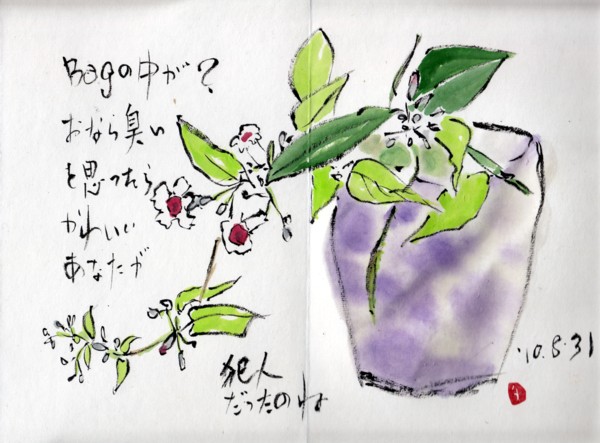 Bagの中が?
おなら臭い
と思ったら
かわいい
あなたが
犯人
だったのね
'10.8.31